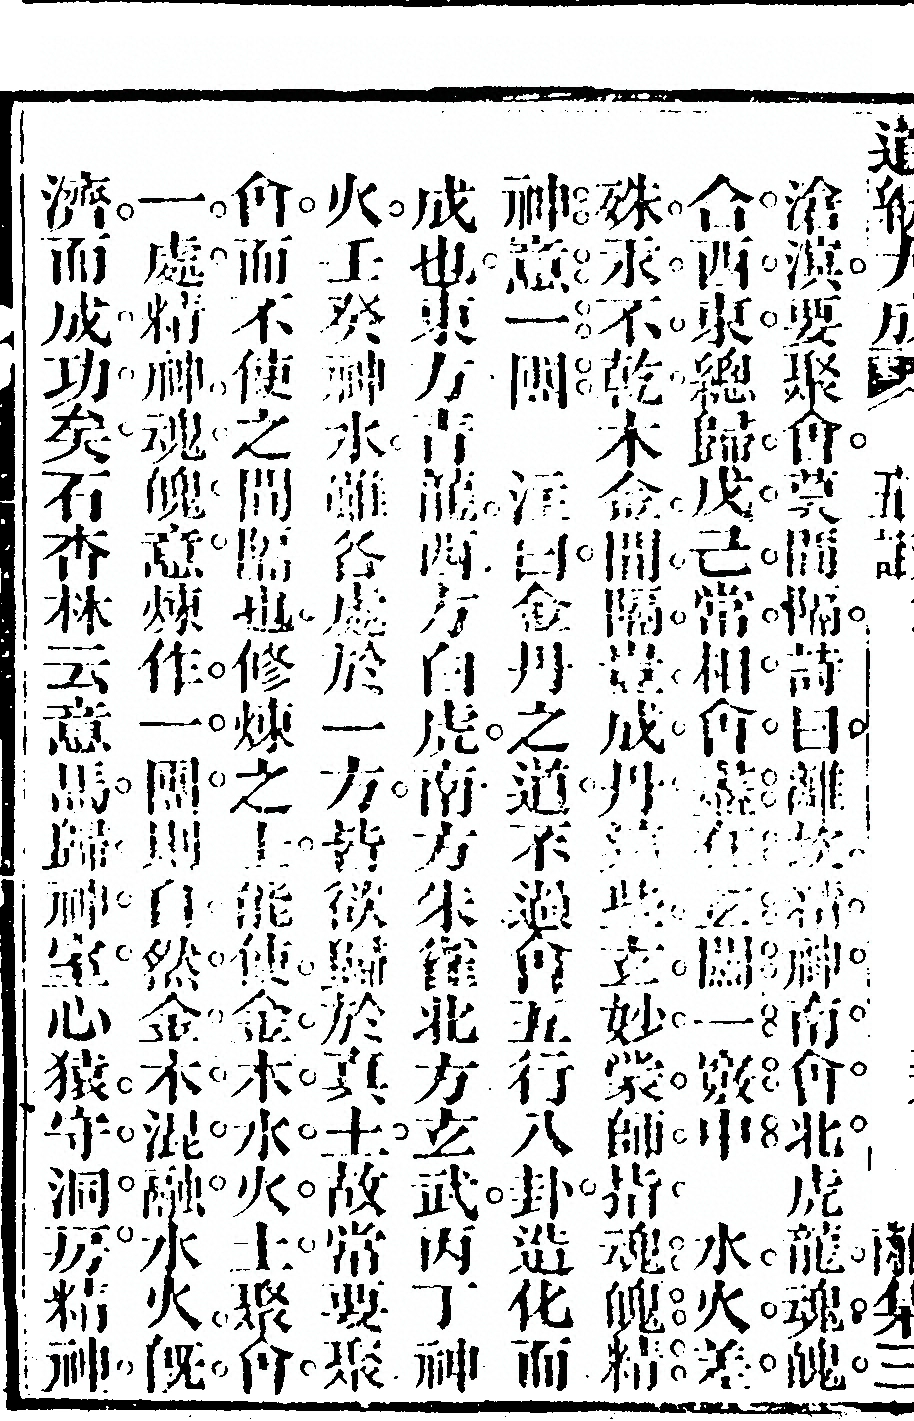 滄溟要聚會莫間隔詩曰離坎精神南會北虎龍魂魄
合西東總歸戊己常相會盡在玄關一竅中　水火差
殊永不乾木金間隔豈成丹這些玄妙蒙師指魂魄精
神意一團　注曰金丹之道不過會五行八卦造化而
成也東方青龍西方白虎南方朱雀北方玄武丙丁神
火壬癸神水雖各處於一方皆欲歸於真土故常要聚
會而不使之間隔也修煉之士能使金木水火土聚會
一處精神魂魄意煉作一團則自然金木混融水火既
濟而成功矣石杏林云意馬歸神室心猿守洞房精神